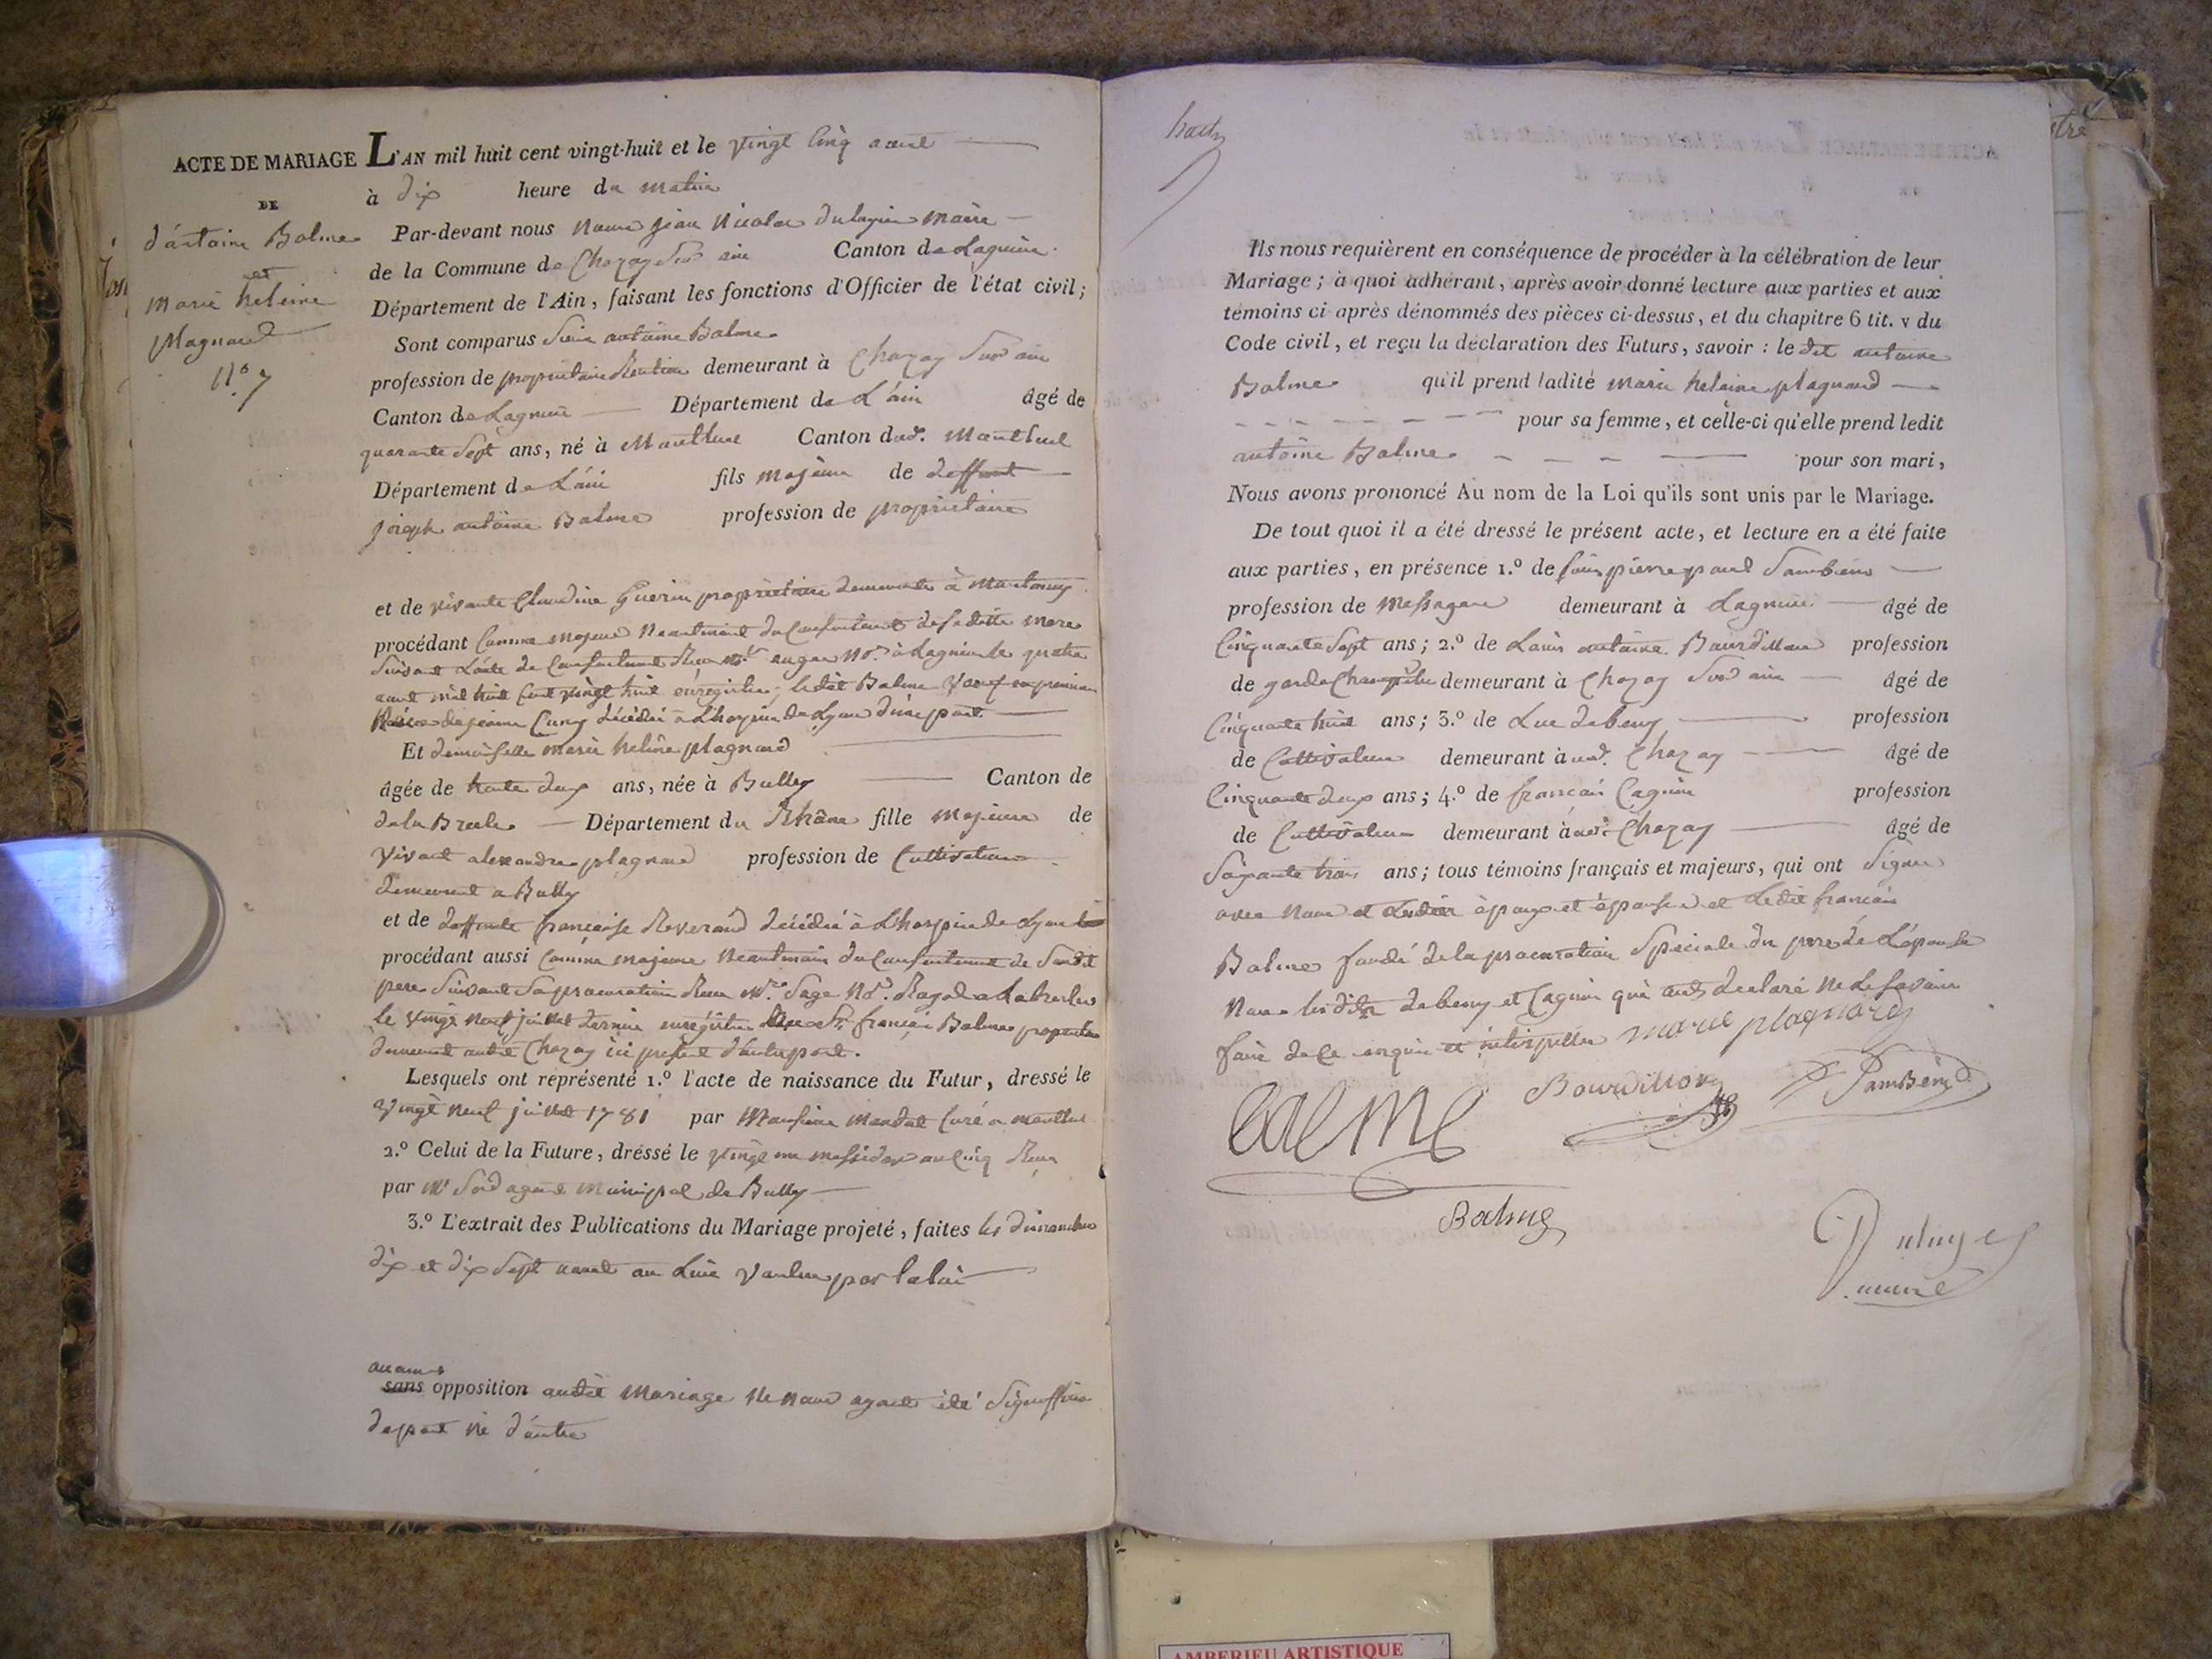 ACTE DE MARIAGE L'AN mil huit cent vingt-huit et le vingt cinq aout
DE
à dix heure du matin
d'antoine Balme
et
marie heleine
plagnard
N.º 7
Par-devant nous nous jean Nicolas maire
de la Commune de Chazay Sur ain Canton de Lagnieu
Département de l'Ain, faisant les fonctions d'Officier de l'état civil;
Sont comparus Sieur antoine Balme
profession de propriétaire Rentier demeurant à Chazay Sur ain
Canton de Lagnieu Département de L'ain âgé de
quarante Sept ans, né à Montluel Canton dud. Montluel
Département de L'ain fils majeur de deffunt
joseph antoine Balme profession de propriétaire
et de vivante Claudine Guerin propriétaire demeurante à
procédant Comme majeur Neantmoint du Consentement de sa ditte mere
Suivant L'acte de Consentement Recu Mr. auger No. à Lagnieu le quatre
aout mil huit Cent vingt huit enregistré; ledit Balme veuf en premiere
Noces de jeanne Cury décédée à L'hospice de Lyon d'une part
Et demoiselle marie heleine plagnard
âgée de trente deux ans, née à Bully Canton de
de la Breele Département du Rhône fille majeure de
vivant alexandre plagnard profession de Cultivateur
demeurant a Bully
et de deffunte francoise Reverand décédée à L'hospice de Lyon
procédant aussi Comme majeure Neantmoins du Consentement de Sondit
pere Suivant Sa procuration Recu Mre. Sage No. Royal a Labreele
le vingt neuf juillet dernier enregistrée francois Balme propriétaire
demeurant audit Chazay ici présent d'autre part.
Lesquels ont représenté 1.º l'acte de naissance du Futur, dressé le
vingt neuf juillet 1781 par Monsieur Mandat Curé a montluel
2.º Celui de la Future, dréssé le vingt un messidor an Cinq Recu
par Mr Sord agent municipal de Bully
3.º L'extrait des Publications du Mariage projeté, faites les dimanches
dix et dix Sept aout au Lieu voulu par la loi
aucune
sans opposition audit Mariage ne nous ayant été Signiffiée
de part ni d'autre
Ils nous requièrent en conséquence de procéder à la célébration de leur
Mariage; à quoi adhérant, après avoir donné lecture aux parties et aux
témoins ci après dénommés des pièces ci-dessus, et du chapitre 6 tit. v du
Code civil, et reçu la déclaration des Futurs, savoir: le dit antoine
Balme qu'il prend ladite marie heleine plagnard
pour sa femme, et celle-ci qu'elle prend ledit
antoine Balme pour son mari,
Nous avons prononcé Au nom de la Loi qu'ils sont unis par le Mariage.
De tout quoi il a été dressé le présent acte, et lecture en a été faite
aux parties, en présence 1.º de pierre paul
profession de Messager demeurant à Lagnieu âgé de
Cinquante Sept ans; 2.º de Louis antoine Bourdillon profession
de garde Champêtre demeurant à Chazay Sur ain âgé de
Cinquante huit ans; 3.º de Luc debeny profession
de Cultivateur demeurant à aud. Chazay âgé de
Cinquante deux ans; 4.º de francois Cagnin profession
de Cultivateur demeurant à aud. Chazay âgé de
Soixante trois ans; tous témoins français et majeurs, qui ont Signé
avec nous et Lesdits époux et épouse et Ledit francois
Balme fondé de la procuration Speciale du pere de L'épouse
Non lesdits debeny et Cagnin qui ont declaré ne le Savoir
faire de ce enquis et interpellés marie plagnard
Balme
Bourdillon
Balme
maire
AMBERIEU ARTISTIQUE